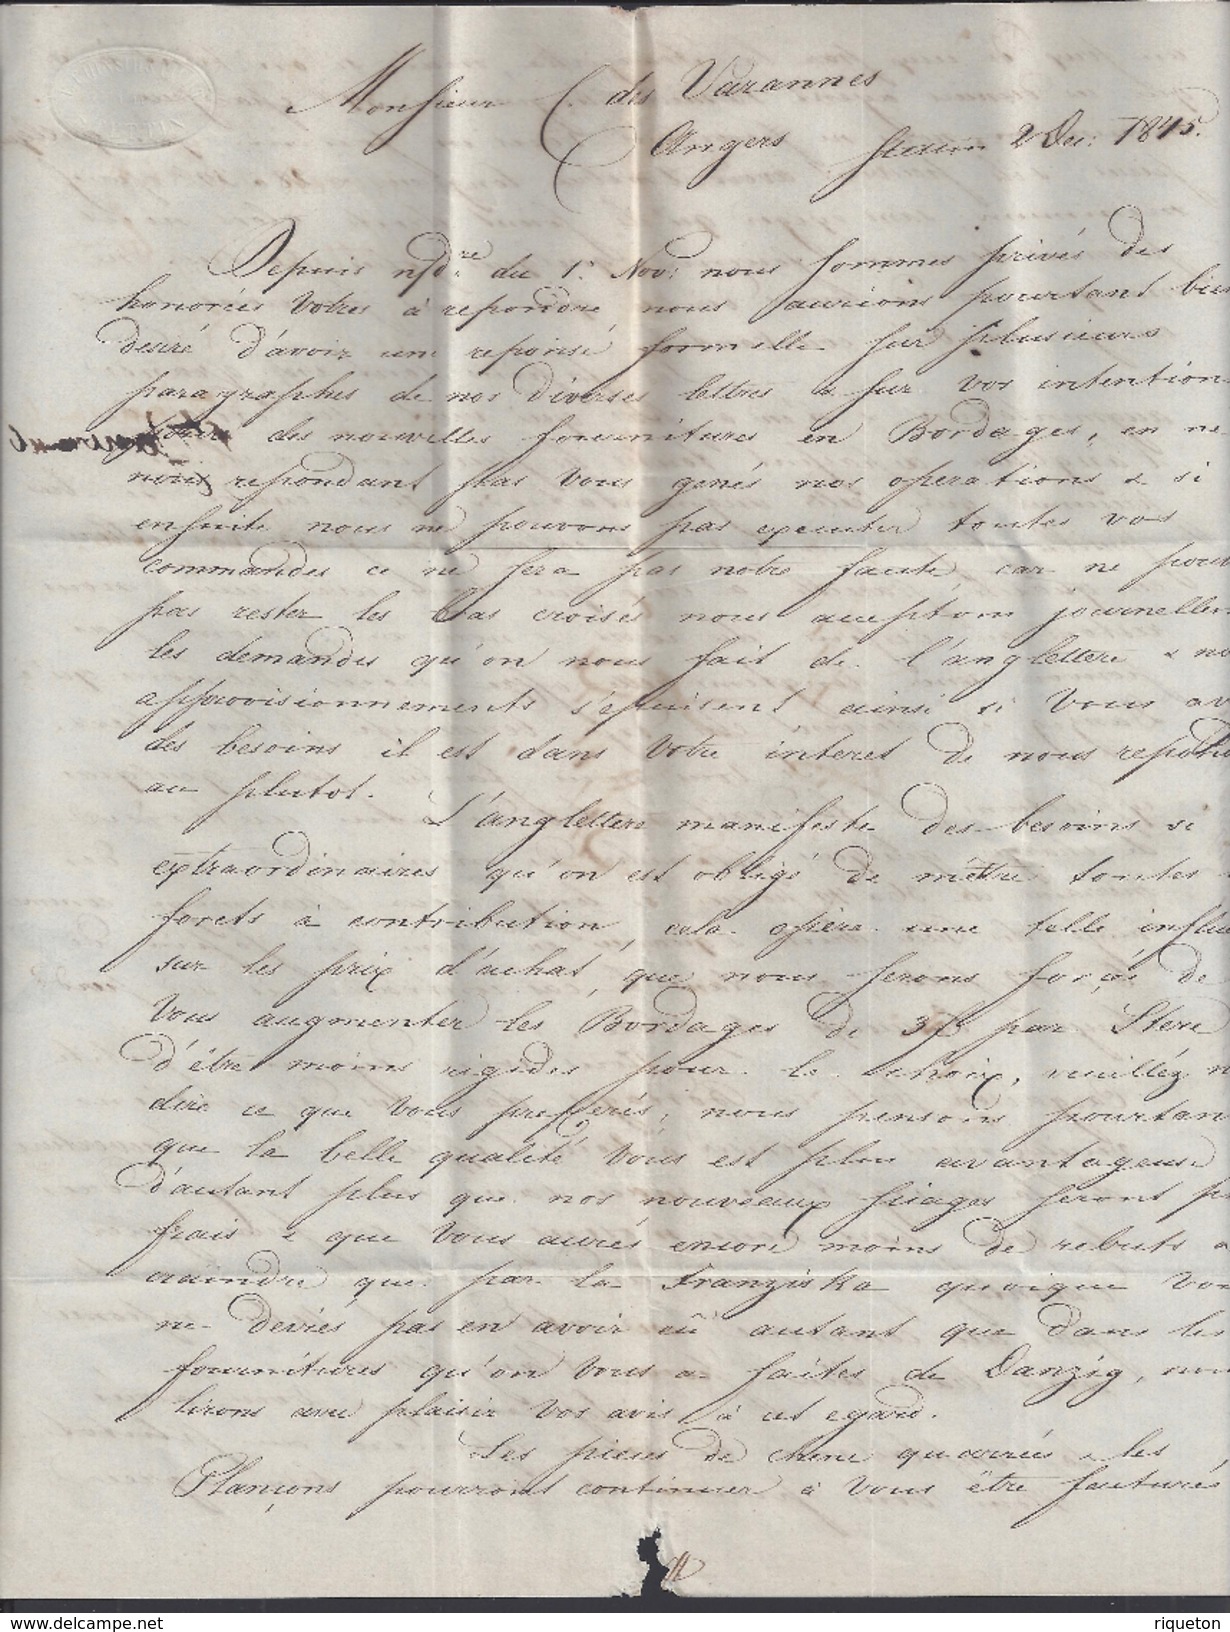 Monsieur C. des Varannes
Angers Stettin 2 Dec: 1845.
Depuis n/d.re du 1.r Nov: nous sommes privés des
honorées Votres à repondre, nous aurions pourtant bien
desiré d'avoir une reponse formelle sur plusieurs
paragraphes de nos diverses lettres & sur vos intention
pour des nouvelles fournitures en Bordages, en ne
nous repondant pas Vous genés nos operations & si
ensuite nous ne pouvons pas executer toutes vos
commandes ce ne sera pas notre faute, car ne pouv
pas rester les bras croisés nous acceptons journellem
les demandes qu'on nous fait de l'anglettere & no
approvisionnements s'epuisent, ainsi si Vous av
des besoins il est dans Votre interet de nous repond
au plutot.
L'anglettere manifeste des besoins si
extraordinaires qu'on est obligé de mettre toutes
forets à contribution, cela opère une telle influ
sur les prix d'achat, que nous serons forçés de
Vous augmenter les Bordages de 3f par Stere
d'être moins rigides pour le choix, veuilléz n
dire ce que Vous preferés; nous pensons pourtan
que la belle qualité Vous est plus avantageuse
d'autant plus que nos nouveaux sciages seront p
frais & que Vous aurés encore moins de rebuts a
craindre que par la Franziska quoique Vou
ne deviés pas en avoir eû autant que dans les
fournitures qu'on Vous a faites de Danzig, nou
lirons avec plaisir Vos avis à cet egard.
Les pieces de chene quarrées & les
Plançons pourront continuer à Vous être facturés
riqueton